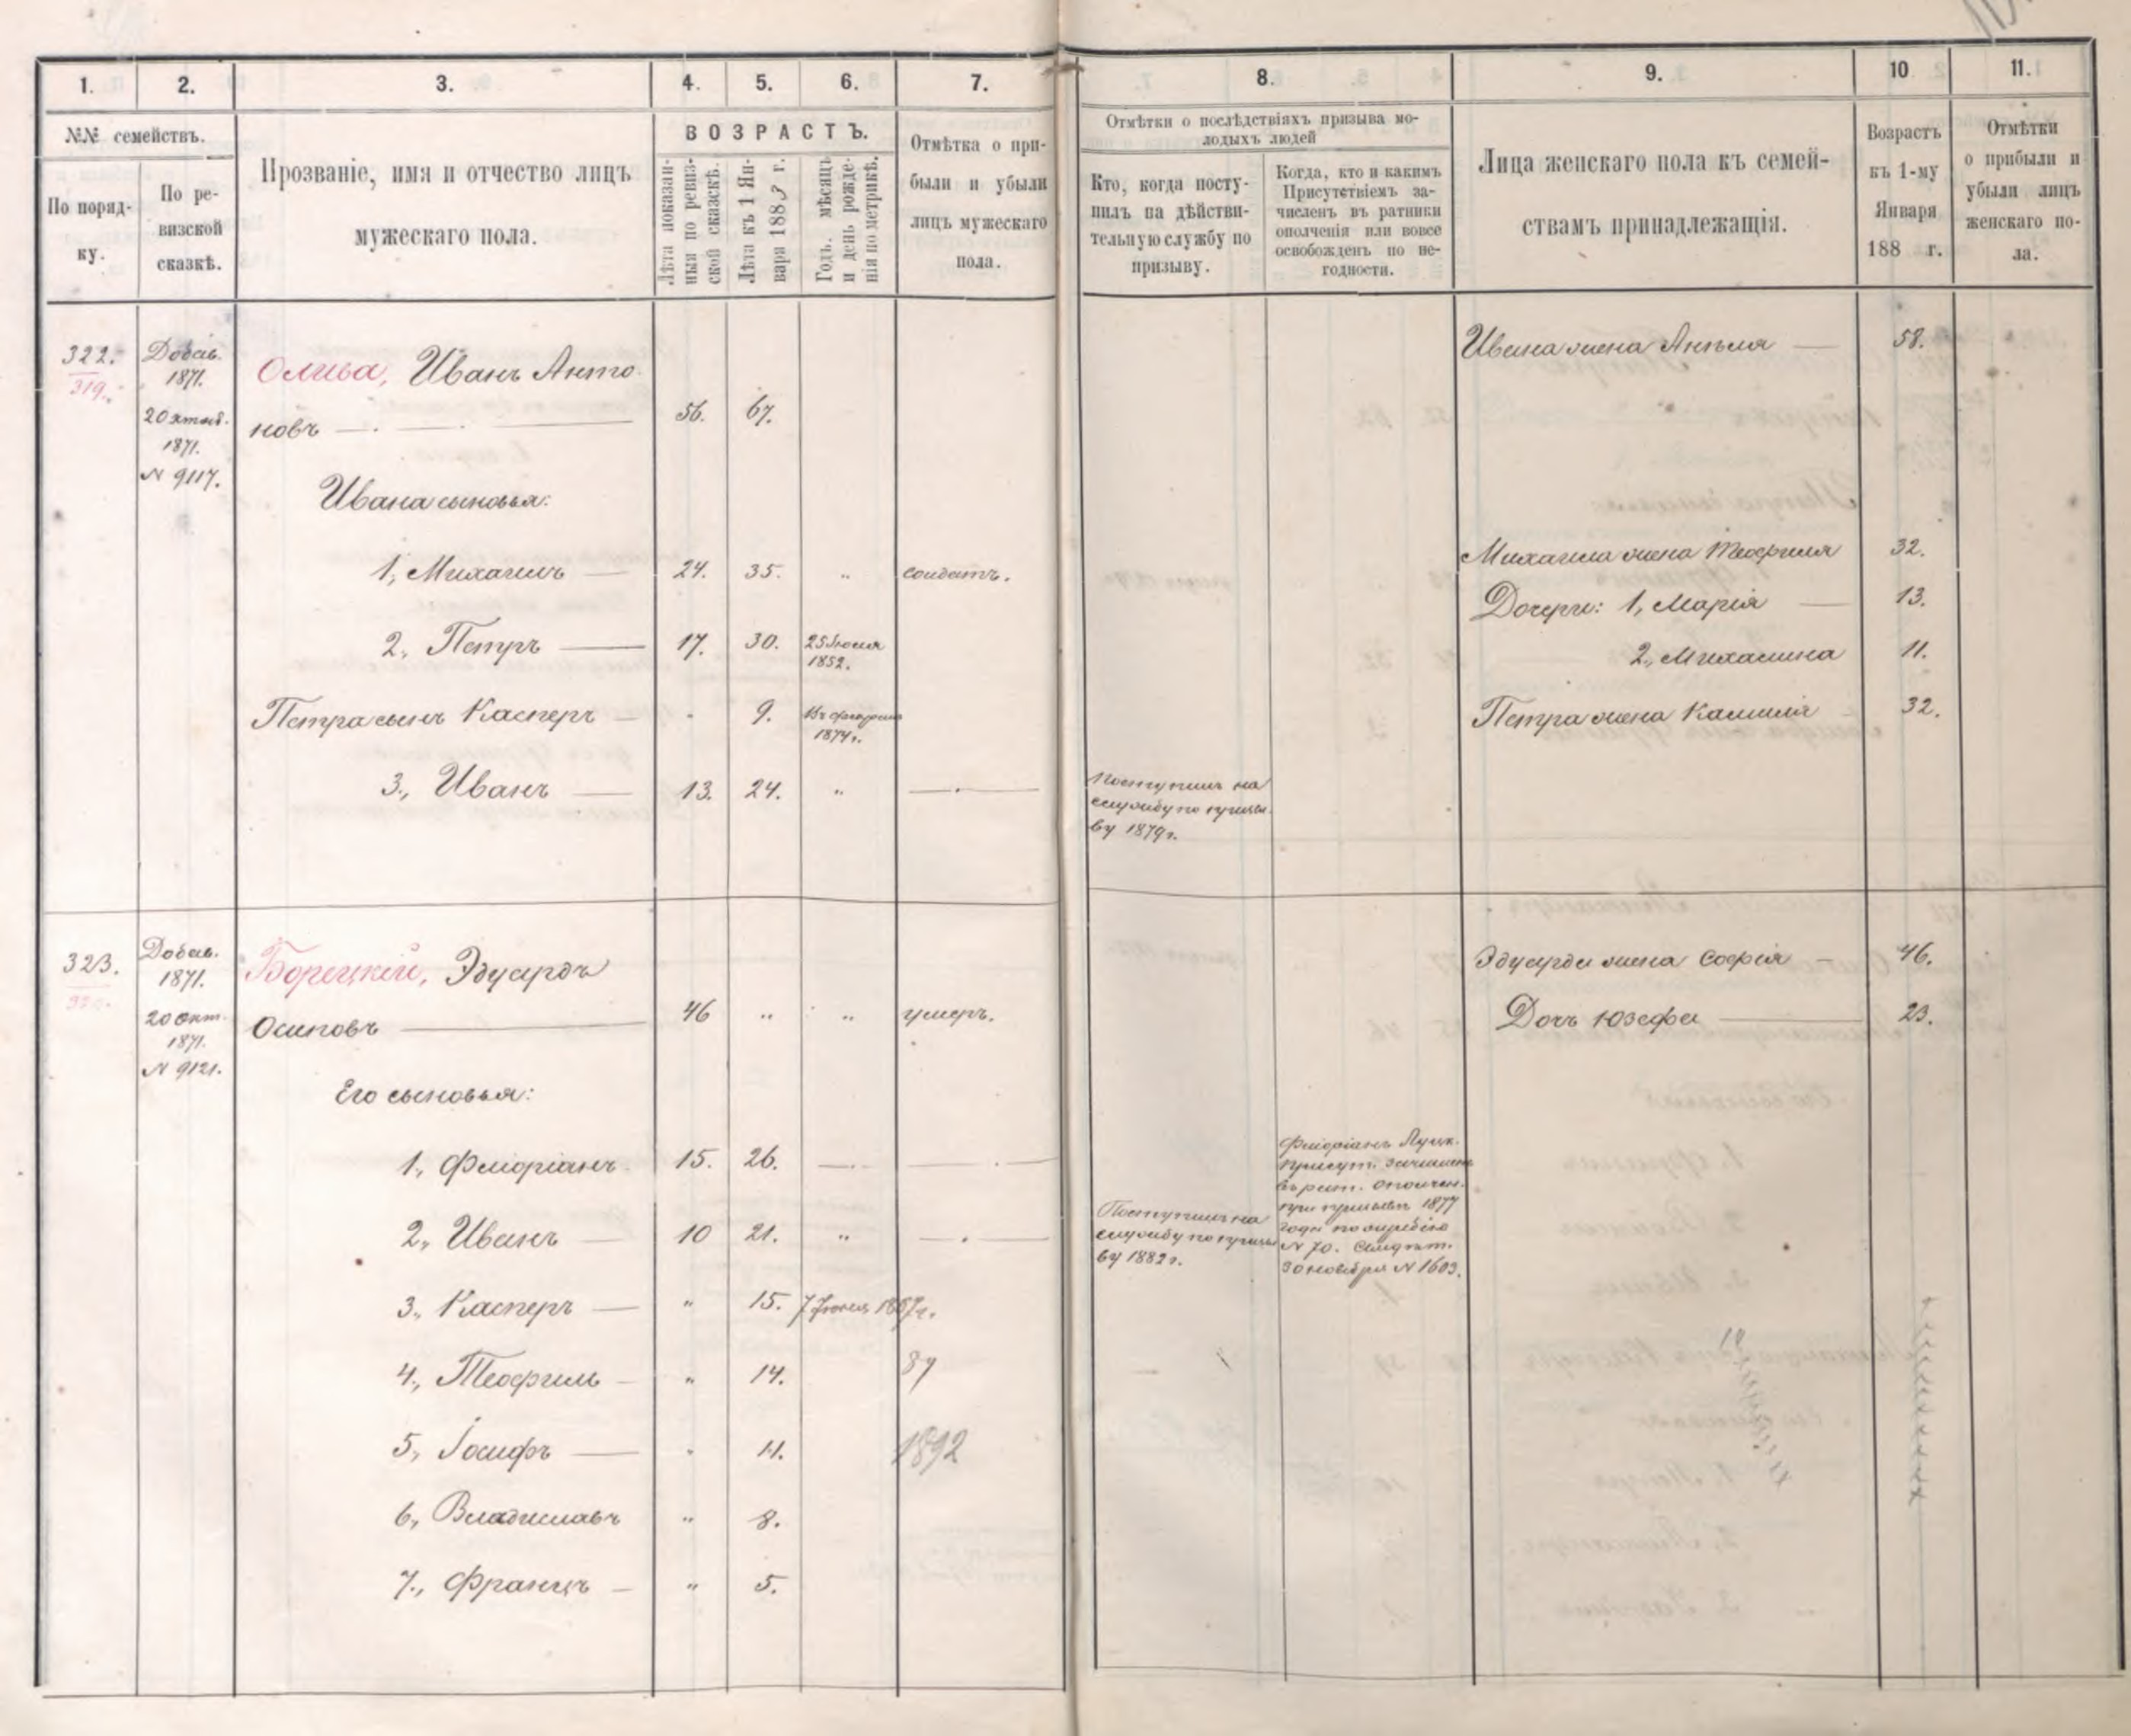 1. 2. 3. 4. 5. 6. 7. 8. 9. 10 11.
№№ семействъ.
По поряд-
ку.
По ре-
визской
сказкѣ.
Прозваніе, имя и отчество лицъ
мужескаго пола.
ВОЗРАСТЪ.
Лѣта показан-
ныя по ревиз-
ской сказкѣ.
Лѣта къ 1 Ян-
варя 1883 г.
Годъ, мѣсяцъ
и день рожде-
нія по метрикѣ.
Отмѣтка о при-
были и убыли
лицъ мужескаго
пола.
Отмѣтки о послѣдствіяхъ призыва мо-
лодыхъ людей
Кто, когда посту-
пилъ на дѣйстви-
тельную службу по
призыву.
Когда, кто и какимъ
Присутствіемъ за-
численъ въ ратники
ополченія или вовсе
освобожденъ по не-
годности.
Лица женскаго пола къ семей-
ствамъ принадлежащія.
Возрастъ
къ 1-му
Января
188 г.
Отмѣтки
о прибыли и
убыли лицъ
женскаго по-
ла.
322.
319.
Добав.
1871.
20 октяб.
1871.
N 9117.
Олива, Иванъ Анто-
новъ 56. 67.
Ивана жена Анѣля 58.
Ивана сыновья:
1, Михаилъ 24. 35. " солдатъ.
Михаила жена Теофиля 32.
Дочери: 1, Марія 13.
2, Михалина 11.
2, Петръ 17. 30. 25 Іюня
1852.
Петра сынъ Касперъ 9.
1874 г.
Петра жена Камиля 32.
3, Иванъ 13. 24. "
Поступилъ на
службу по призы-
ву 1879 г.
323.
320.
Добав.
1871.
20 Окт.
1871.
N 9121.
Борецкій, Эдуардъ
Осиповъ 46 " " умеръ.
Эдуарда жена Софія 46.
Дочь Юзефа 23.
Его сыновья:
1, Флоріанъ 15. 26.
Флоріанъ Луцк.
присут. зачисленъ
въ рат. ополчен.
при призывѣ 1877
года по жребію
N 70. Свидѣт.
30 ноября N 1603.
2, Иванъ 10 21. "
Поступилъ на
службу по призы-
ву 1882 г.
3, Касперъ " 15. 7 Іюня 1867 г.
4, Теофиль " 14. 89
5, Іосифъ " 11. 1892
6, Владиславъ " 8.
7, Францъ " 5.